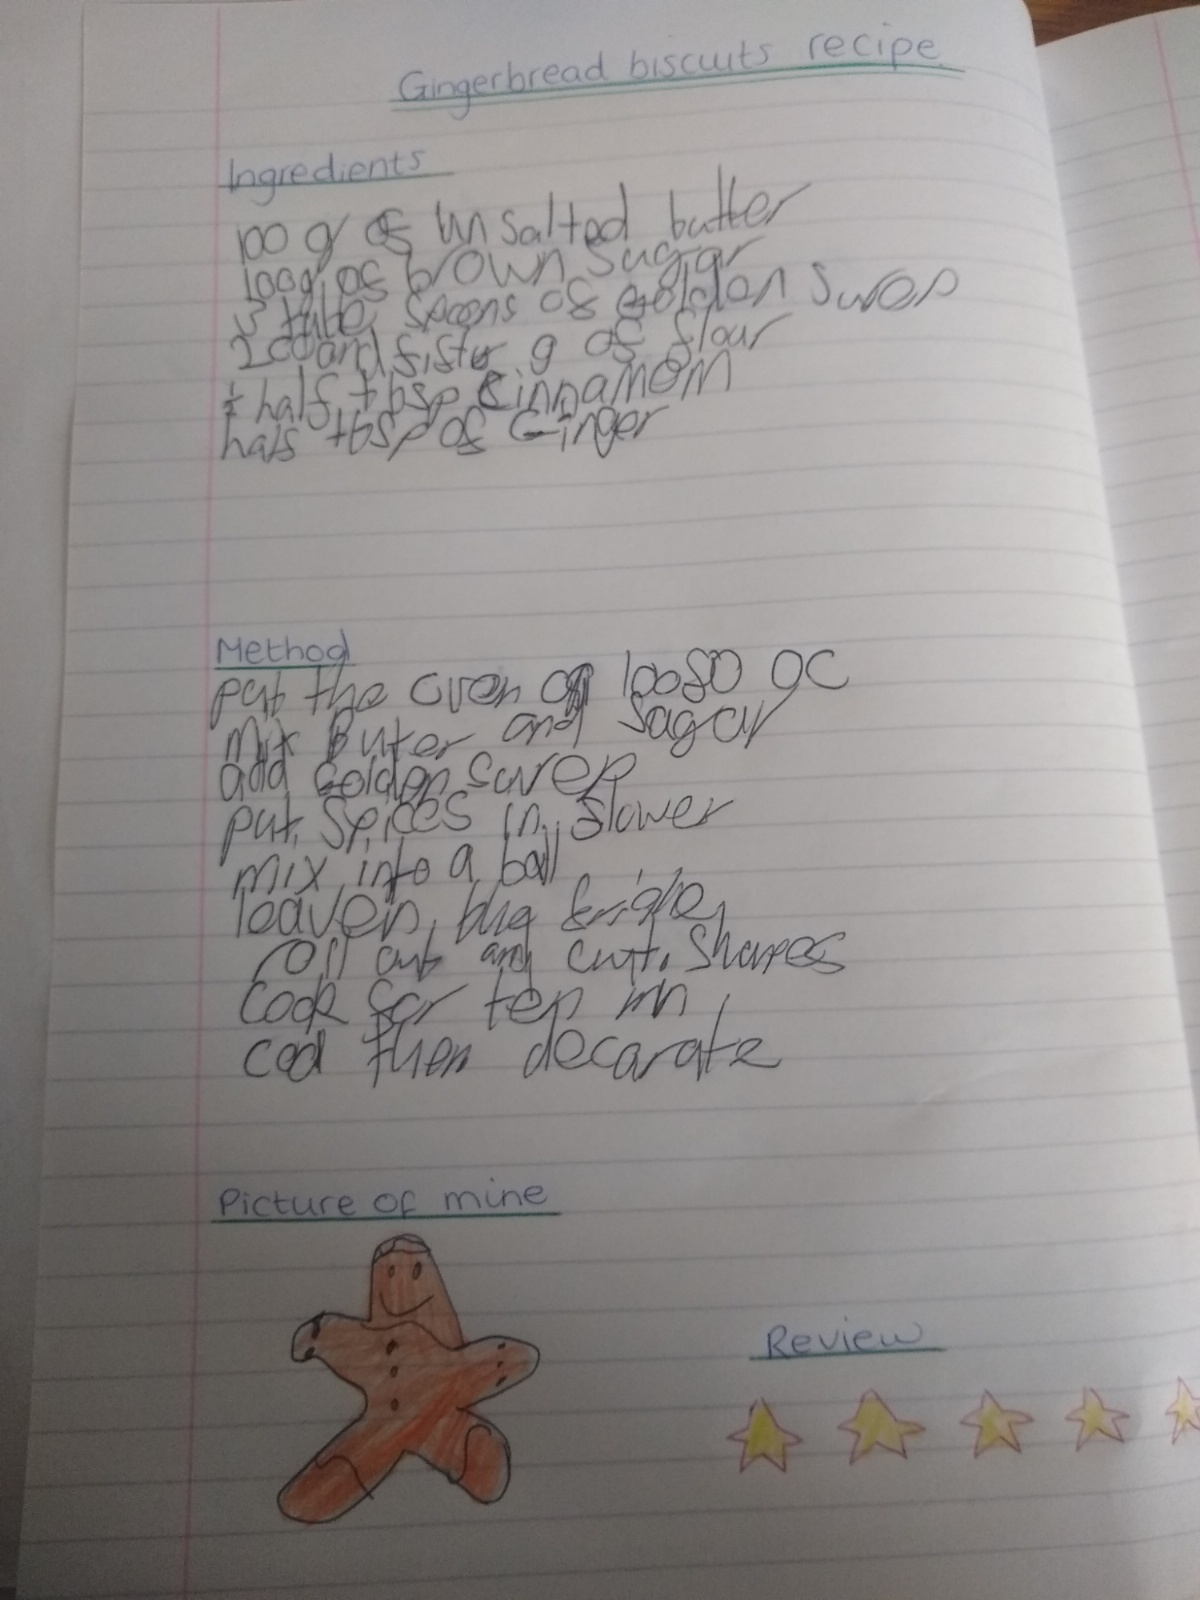 Gingerbread biscuits recipe
Ingredients
100 g of unsalted butter
100g of brown sugar
3 table spoons of golden surep
200 and fistu g of flour
half tbsp cinnamom
hafs tbsp of Ginger
Method
put the oven 10080 oc
mix Buter and Sagar
add Golden Surep
put spices in flower
mix into a ball
leaven frigde
roll out and cut shapes
Cook for ten mn
cool then decarate
Picture of mine
Review